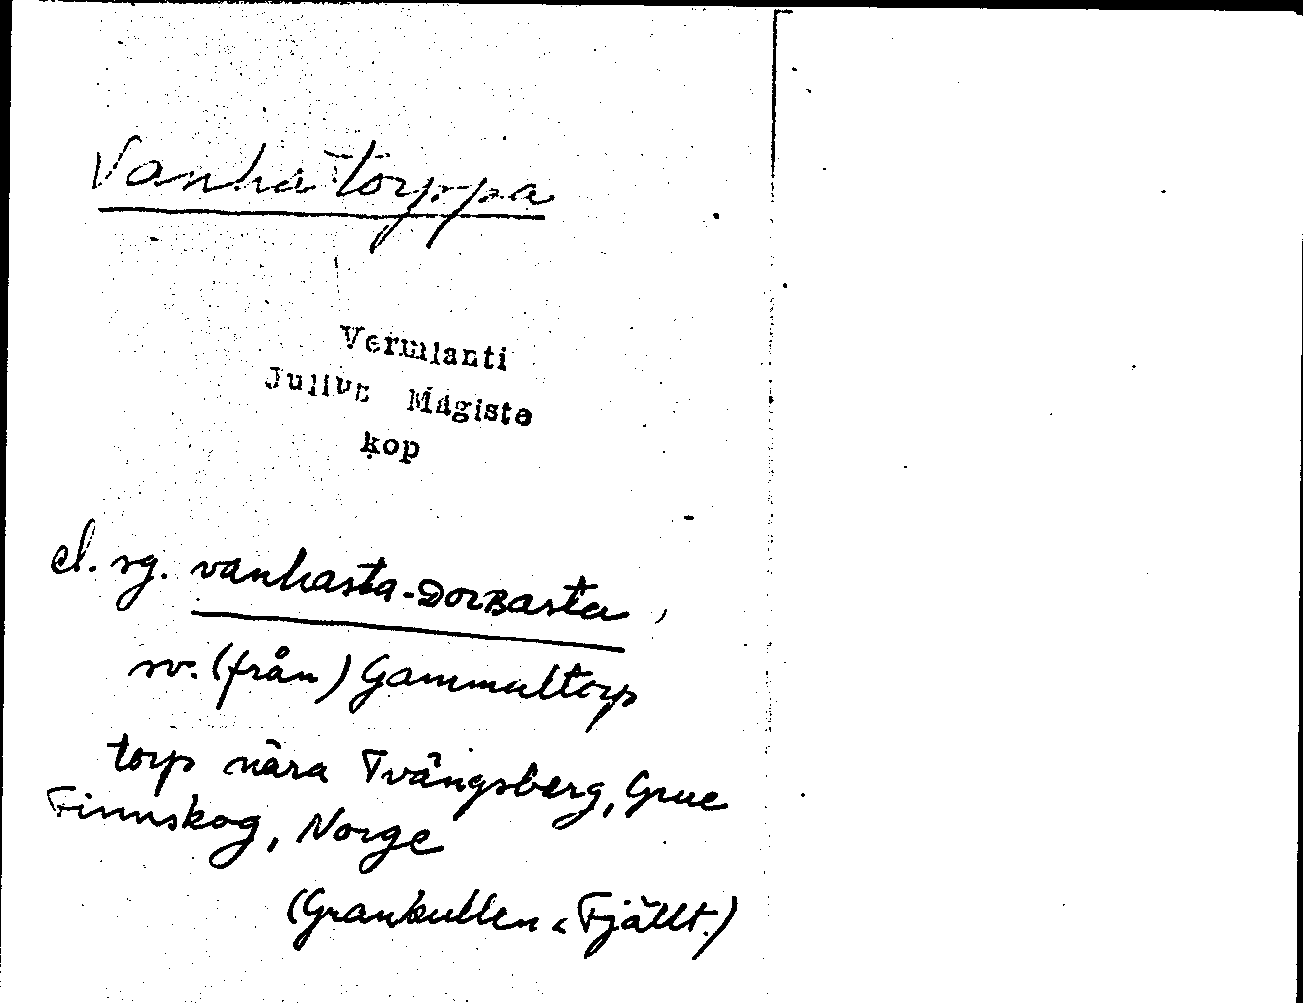 Vanha torppa
Vermlanti
Julius Mägiste
kop
el. sg. vanhasta-DorBasta,
sv. (från) Gammaltorp
torp nära Tvängsberg, Grue
Finnskog, Norge
(Grankullen < Fjällt.)